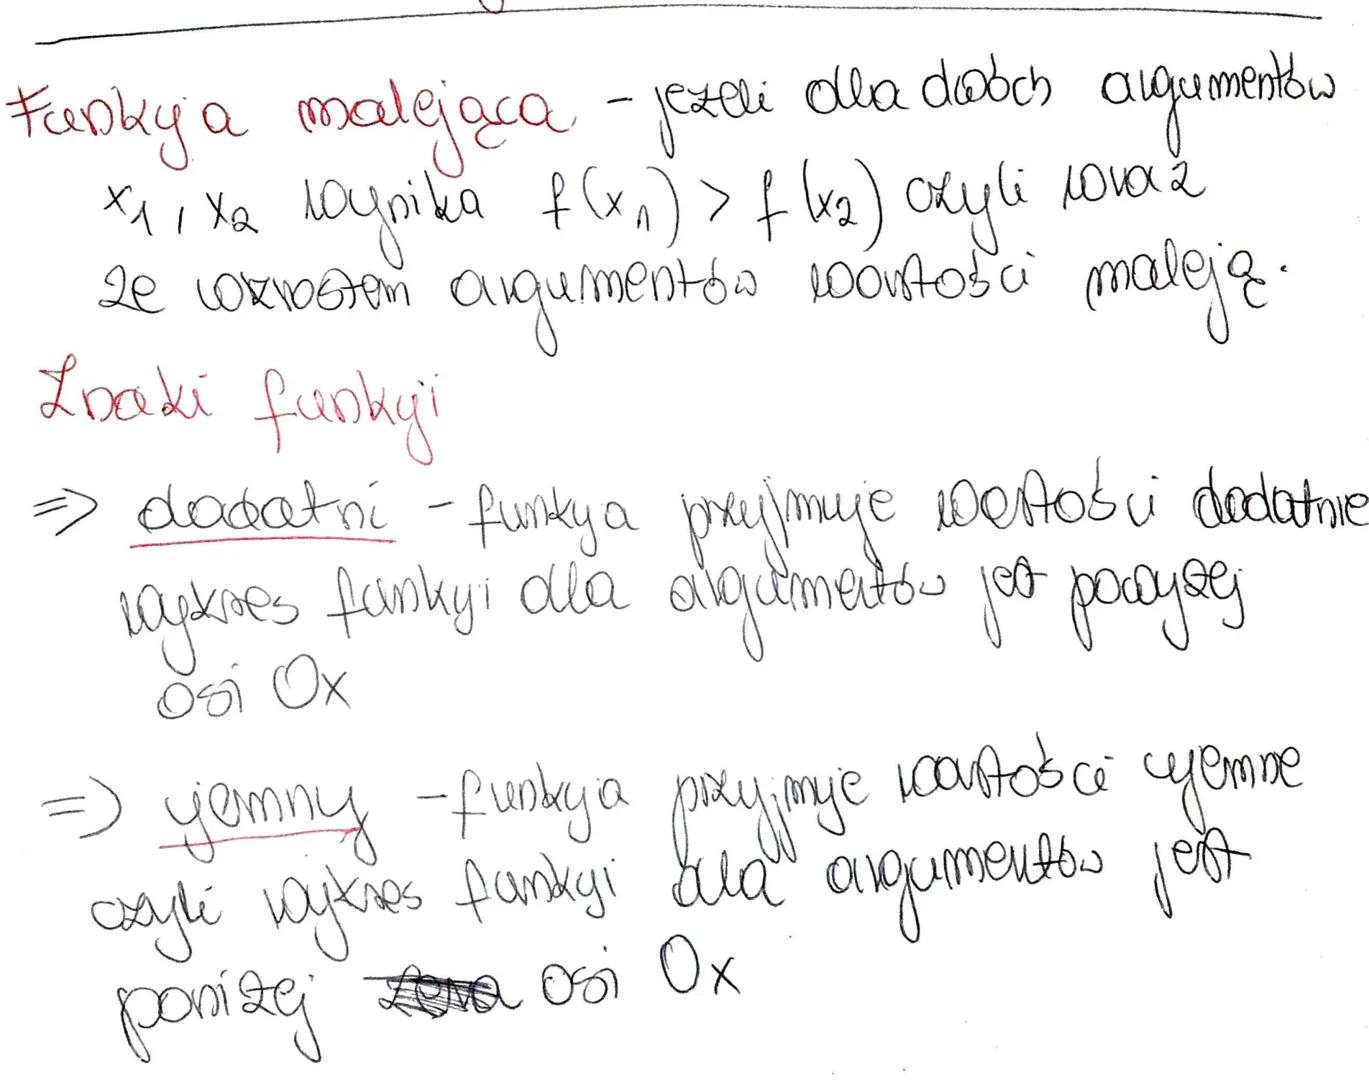 Funkcja malejąca - jeżeli dla dwóch argumentów
x₁, x₂ wynika f(x₁) > f(x₂) czyli wraz
ze wzrostem argumentów wartości maleją.
Znaki funkcji
=> dodatni - funkcja przyjmuje wartości dodatnie
wykres funkcji dla argumentów jest powyżej
osi Ox
=> ujemny - funkcja przyjmuje wartości ujemne
czyli wykres funkcji dla argumentów jest
poniżej osi Ox